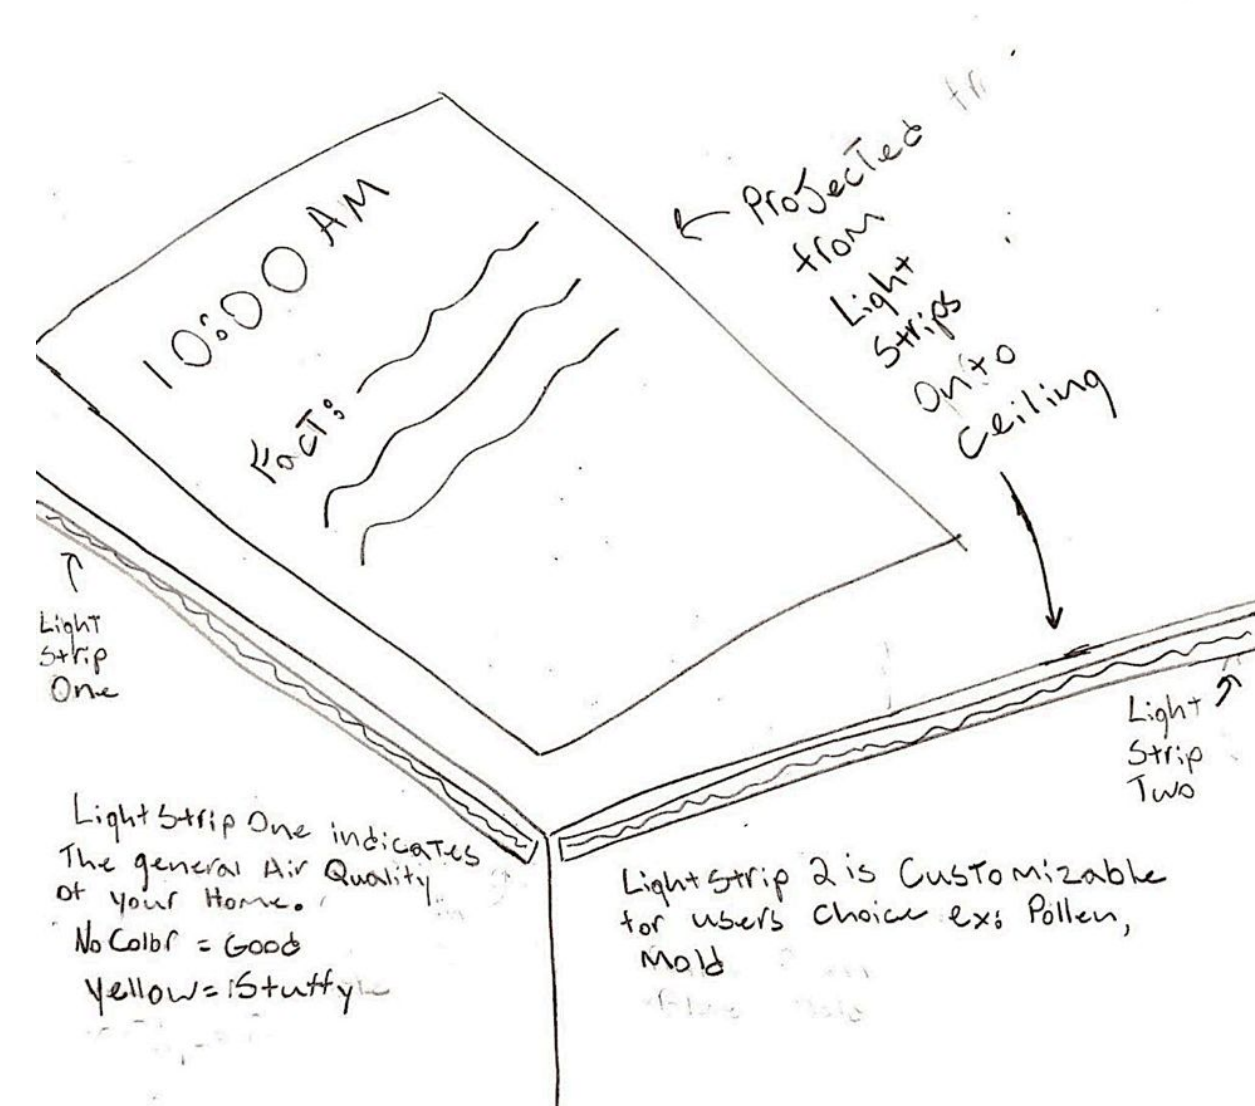 10:00 AM
Fact:
Projected
from
Light
Strips
Onto
Ceiling
Light
Strip
One
Light
Strip
Two
Light Strip One indicates
The general Air Quality
of your Home.
No Color = Good
Yellow = Stuffy
Light Strip 2 is Customizable
for users choice ex: Pollen,
Mold